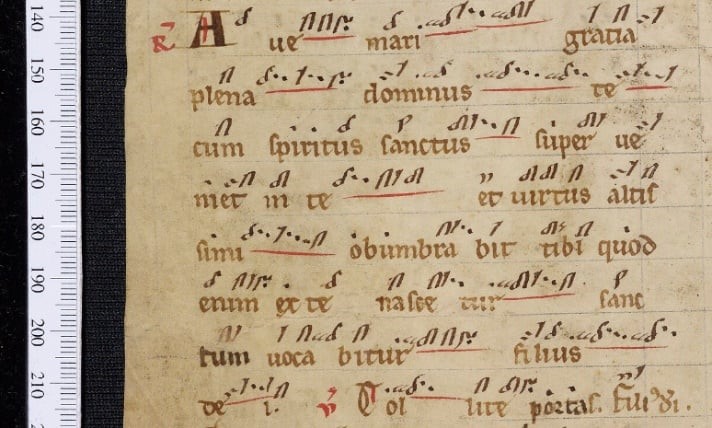 140
150
160
170
180
190
200
210
℟ A ue mari gratia
plena dominus te
cum spiritus sanctus super ue
niet in te et uirtus altis
simi obumbra bit tibi quod
enim ex te nasce tur sanc
tum uoca bitur filius
de i. ℣ Tol lite portas.